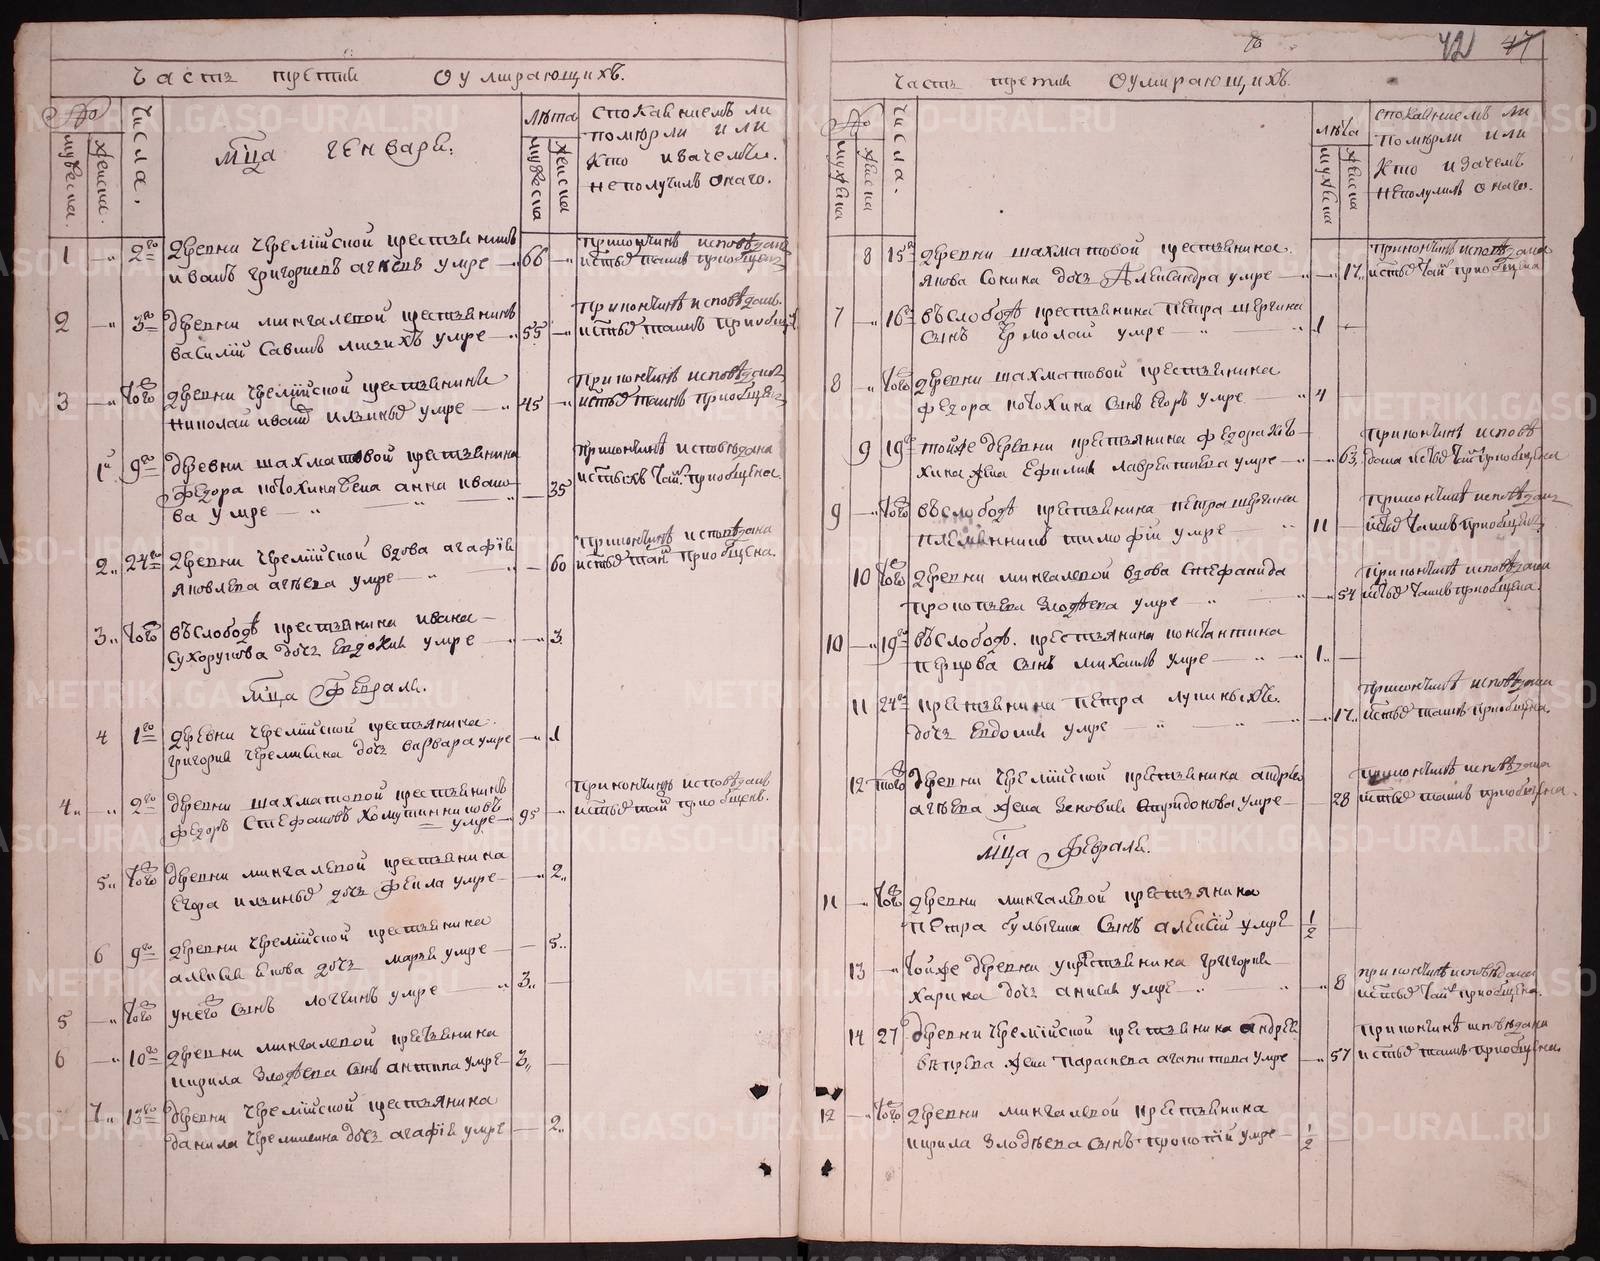 Часть третия О умирающихъ.
№
Числа.
мужеска.
женска.
мца генваря:
лѣта
мужеска
женска
с покаяниемъ ли
помѣрли или
кто и зачемъ
неполучилъ онаго.
1 2го деревни Черемисской крестьянинъ
Иванъ Григорьевъ Агѣевъ умре 66
при кончинѣ исповѣданъ
и святыхъ таинъ приобщенъ
2 3го деревни Мингалевой крестьянинъ
Василий Савинъ умре 55
при кончинѣ исповѣданъ
таинъ приобщенъ
3 того деревни Черемисской крестьянинъ
Николай умре 45
при кончинѣ исповѣданъ
таинъ приобщенъ
1 9го деревни Шахматовой крестьянина
Федора жена Анна Ивано
ва умре 35
при кончинѣ исповѣдана
приобщена
2 24го деревни Черемисской вдова Агафия
Яковлева Агѣева умре 60
при кончинѣ исповѣдана
приобщена.
3 того въ слободѣ крестьянина Ивана
Сухорукова дочь Евдокия умре 3
мца Февраля.
4 1го деревни Черемисской крестьянина
Григория дочь Варвара умре 1
4 2го деревни Шахматовой крестьянинъ
Федоръ Стефановъ умре 95
при кончинѣ исповѣданъ
приобщенъ.
5 того деревни Мингалевой крестьянина
Егора дочь Фекла умре 2
6 9го деревни Черемисской крестьянина
Алексия дочь Марья умре 5
5 того у него сынъ Логгинъ умре 3
6 10го деревни Мингалевой крестьянина
Кирила Злодѣева сынъ Антипа умре 3
7 13го деревни Черемисской крестьянина
Данила дочь Агафия умре 2
42 47
Часть третия О умирающихъ.
№
Числа.
мужеска
женска
лѣта
мужеска
женска
с покаяниемъ ли
помѣрли или
кто и зачемъ
неполучилъ онаго.
8 15го деревни Шахматовой крестьянина
Якова Сокина дочь Александра умре 17
при кончинѣ исповѣдана
приобщена
7 16го въ слободѣ крестьянина Петра
сынъ Ермолай умре 1
8 того деревни Шахматовой крестьянина
Федора сынъ Егоръ умре 4
9 19го тойже деревни крестьянина Федора
жена Ефимия Лаврентиева умре 63
при кончинѣ исповѣ
дана приобщена
9 того въ слободѣ крестьянина Петра
племянникъ Тимофий умре 11
при кончинѣ исповѣданъ
приобщенъ
10 того деревни Мингалевой вдова Стефанида
Прокопьева Злодѣева умре 54
при кончинѣ исповѣдана
приобщена.
10 19го въ слободѣ крестьянина Константина
Перцова сынъ Михаилъ умре 1
11 24го крестьянина Петра
дочь Евдокия умре 17
при кончинѣ исповѣдана
таинъ приобщена.
12 того деревни Черемисской крестьянина Андрея
Агѣева жена Зеновия Спиридонова умре 28
при кончинѣ исповѣдана
таинъ приобщена.
мца Февраля.
11 того деревни Мингалевой крестьянина
Петра Булыгина сынъ Алексий умре 1/2
13 тойже деревни у крестьянина Григория
Харина дочь Анисия умре 8
при кончинѣ исповѣдана
приобщена.
14 27 деревни Черемисской крестьянина Андрея
жена Параскева Агапитова умре 57
при кончинѣ исповѣдана
таинъ приобщена.
12 того деревни Мингалевой крестьянина
Кирила Злодѣева сынъ Прокопий умре 1/2
METRIKI.GASO-URAL.RU